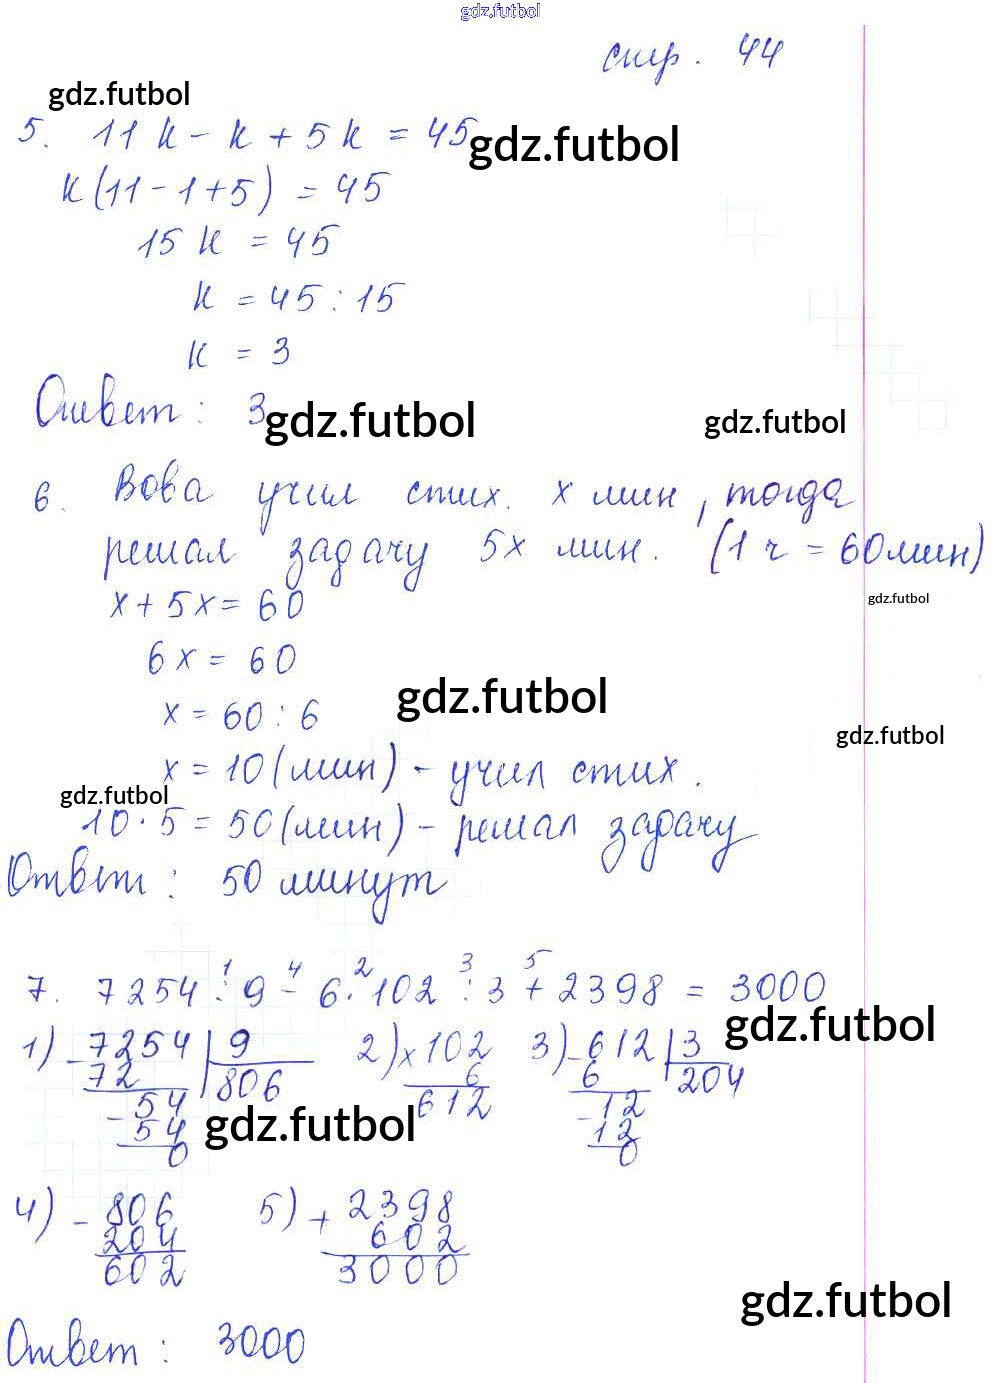 gdz.futbol
стр. 44
gdz.futbol
5. 11 k - k + 5 k = 45
gdz.futbol
k(11 - 1 + 5) = 45
15 k = 45
k = 45 : 15
k = 3
Ответ : 3
gdz.futbol
gdz.futbol
6. Вова учил стих. x мин, тогда
решал задачу 5x мин. (1 ч = 60 мин)
x + 5x = 60
gdz.futbol
6x = 60
gdz.futbol
x = 60 : 6
gdz.futbol
x = 10 (мин) - учил стих.
gdz.futbol
10 · 5 = 50 (мин) - решал задачу
Ответ : 50 минут
1 4 2 3 5
7. 7254 : 9 - 6 · 102 : 3 + 2398 = 3000
gdz.futbol
1) - 7254 | 9 2) x 102 3) - 612 | 3
72 806 6 6 204
- 54 612 - 12
54 12
gdz.futbol
0 0
4) - 806 5) + 2398
204 602
602 3000
gdz.futbol
Ответ : 3000